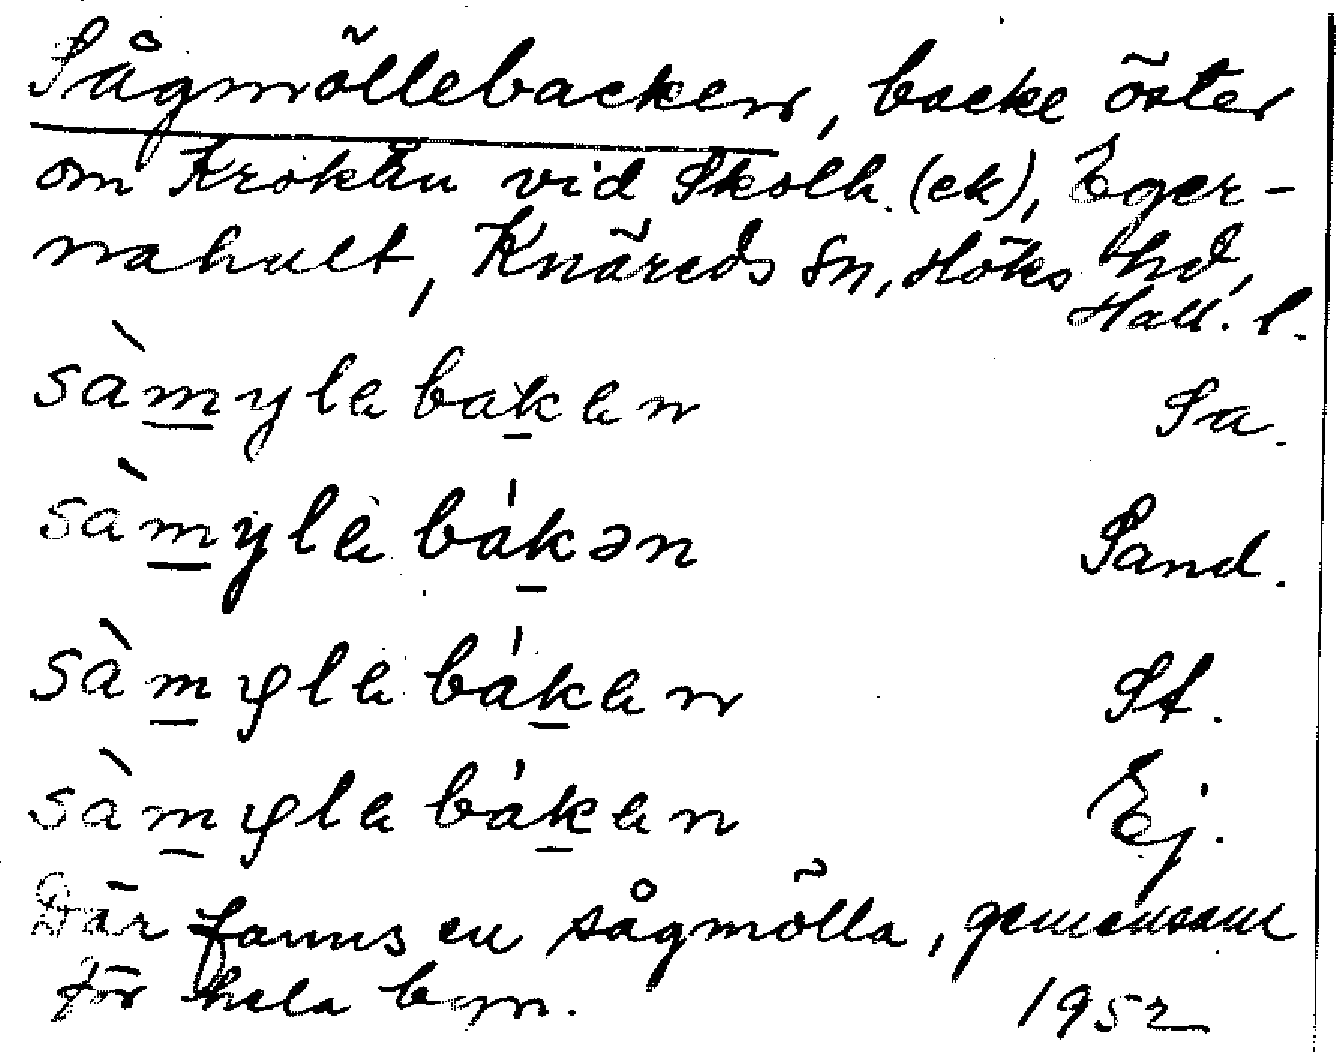 Sågmöllebacken, backe öster
om Krokån vid Skolh. (ek), Eger-
nahult, Knäreds sn, Höks hd,
Hall. l.
sàmylebaken Sa.
sàmylebákən Sand.
sàmylebáken St.
sàmylebáken Ej.
Där fanns en sågmölla, gemensam
för hela byn. 1952